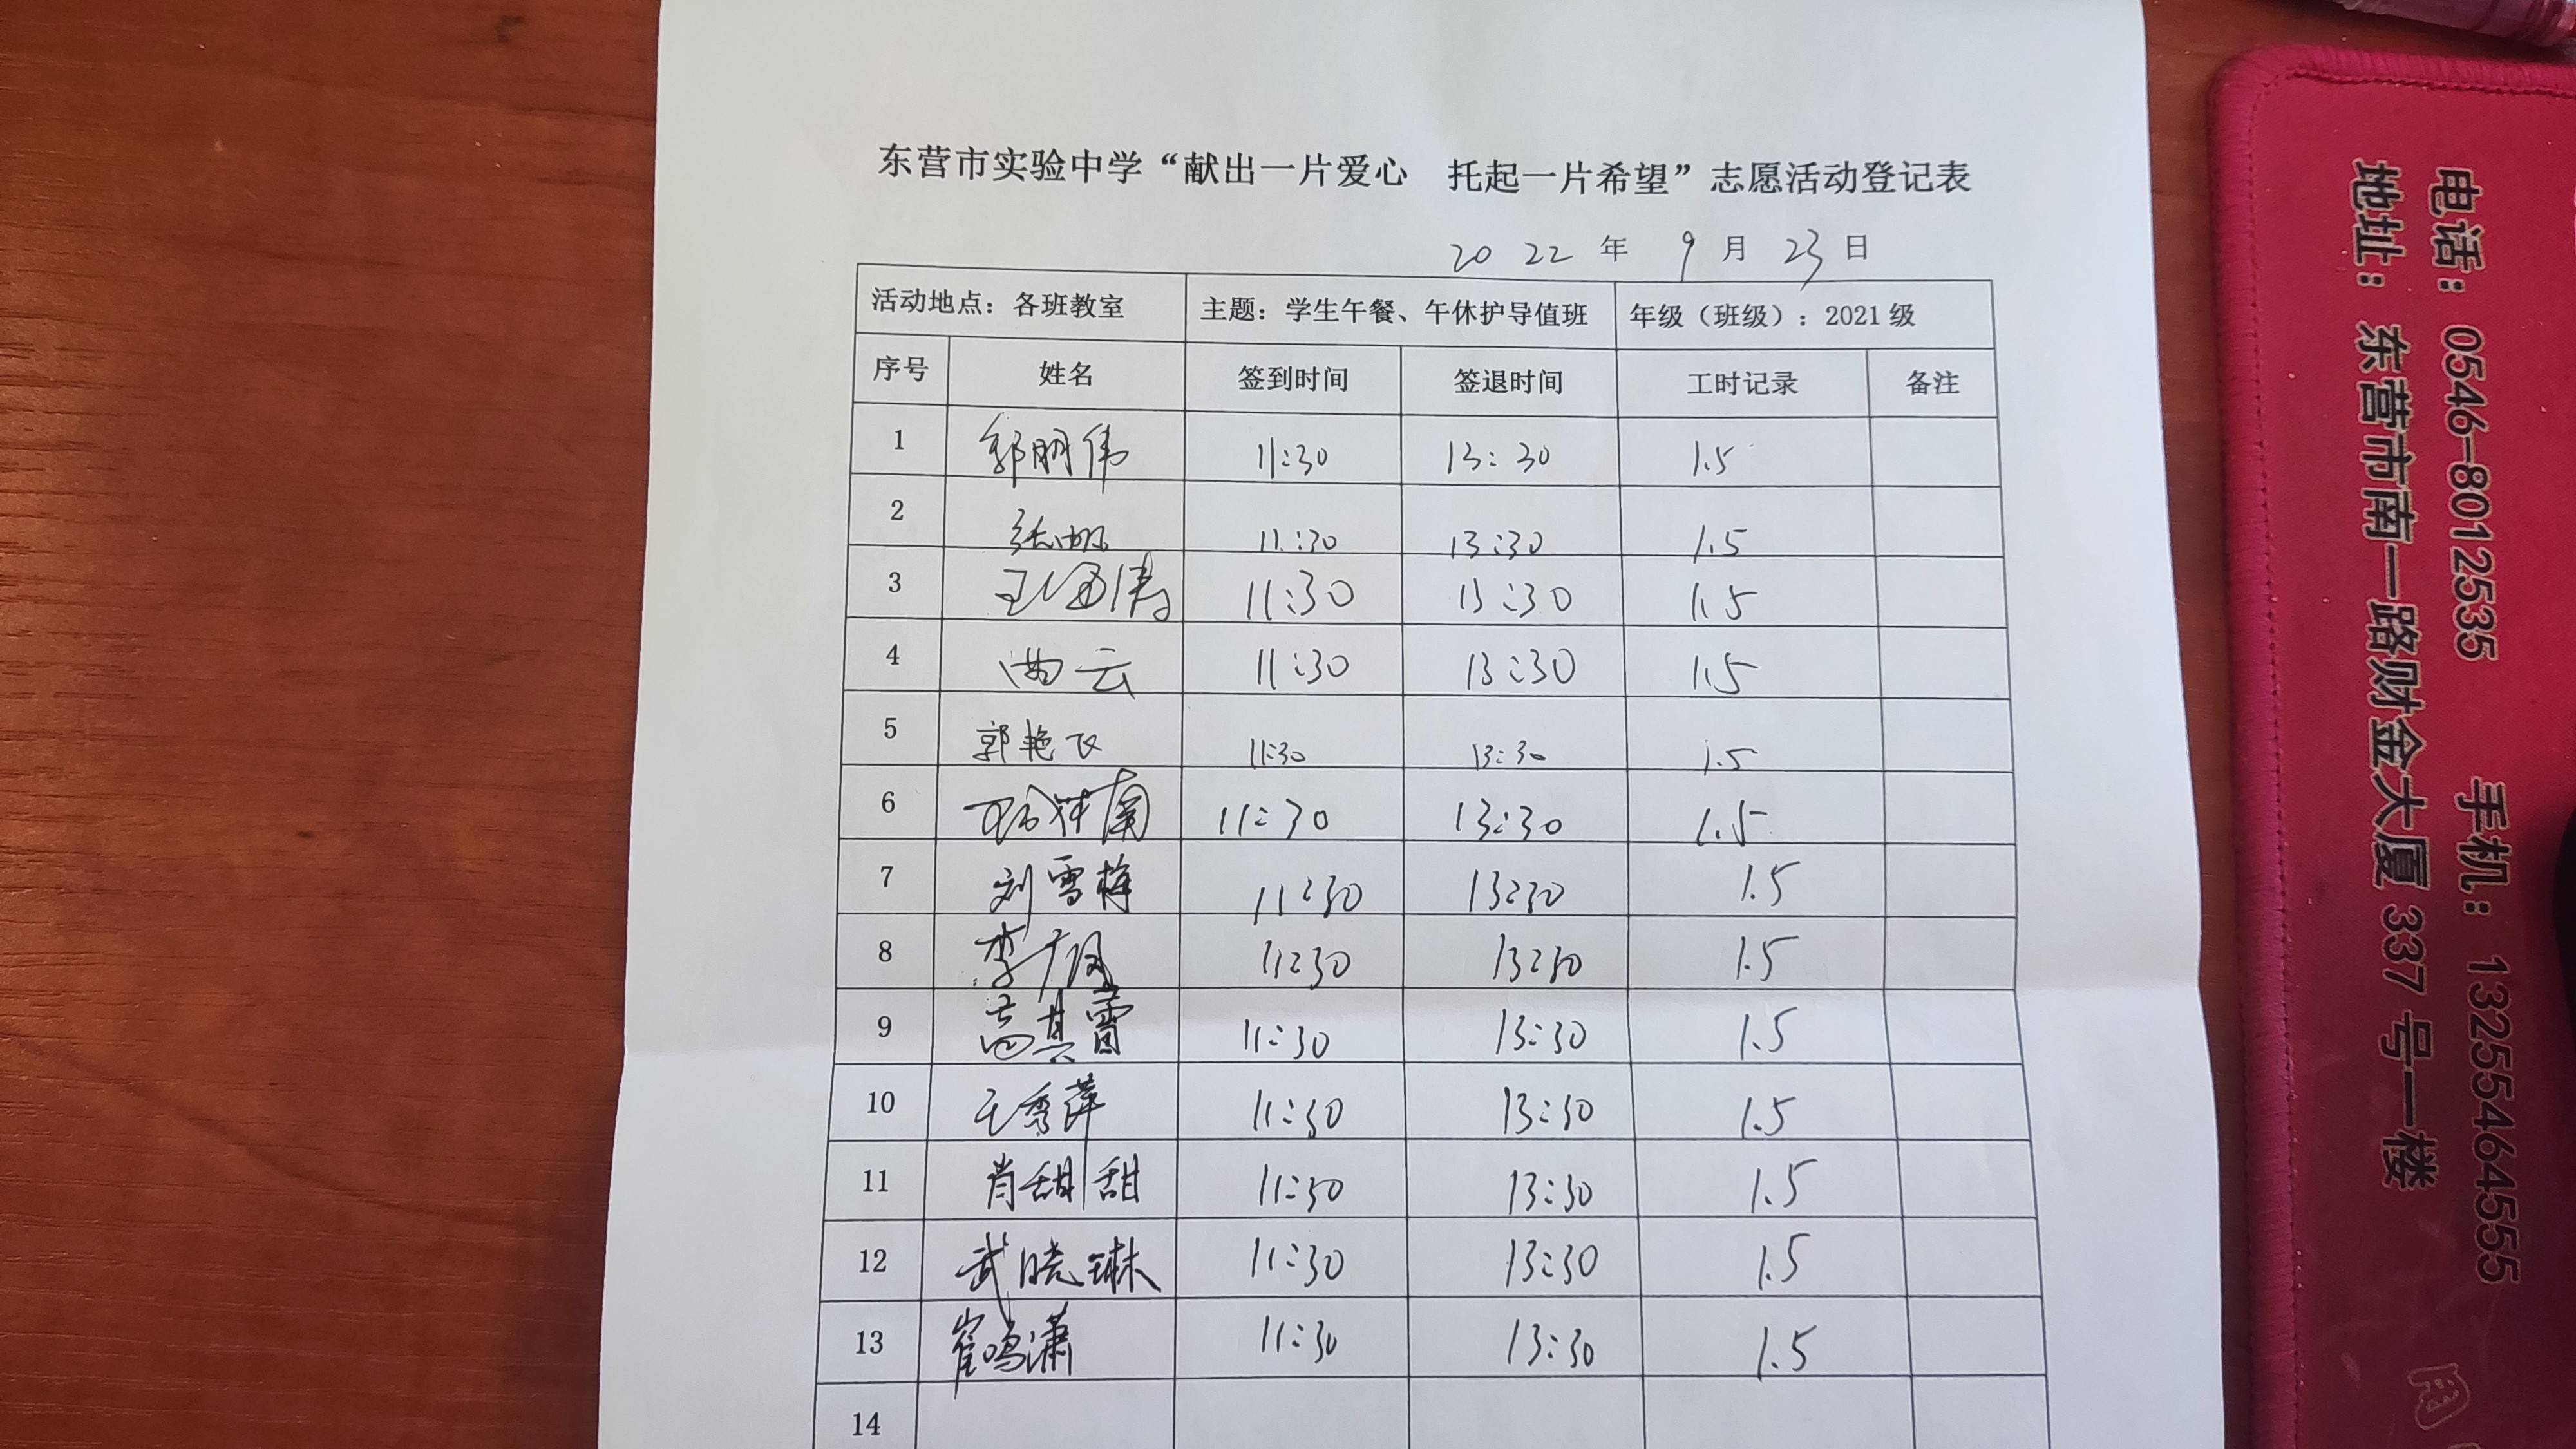 东营市实验中学“献出一片爱心 托起一片希望”志愿活动登记表
2022 年 9 月 23 日
活动地点：各班教室 主题：学生午餐、午休护导值班 年级（班级）：2021 级
序号 姓名 签到时间 签退时间 工时记录 备注
1 郭明伟 11:30 13:30 1.5
2 张帆 11:30 13:30 1.5
3 11:30 13:30 1.5
4 云 11:30 13:30 1.5
5 郭艳飞 11:30 13:30 1.5
6 11:30 13:30 1.5
7 刘雪梅 11:30 13:30 1.5
8 李 11:30 13:30 1.5
9 孟其雷 11:30 13:30 1.5
10 王秀萍 11:30 13:30 1.5
11 肖甜甜 11:30 13:30 1.5
12 武晓琳 11:30 13:30 1.5
13 崔鸣潇 11:30 13:30 1.5
14
电话：0546-8012535 手机：13255464555
地址：东营市南一路财金大厦 337 号一楼